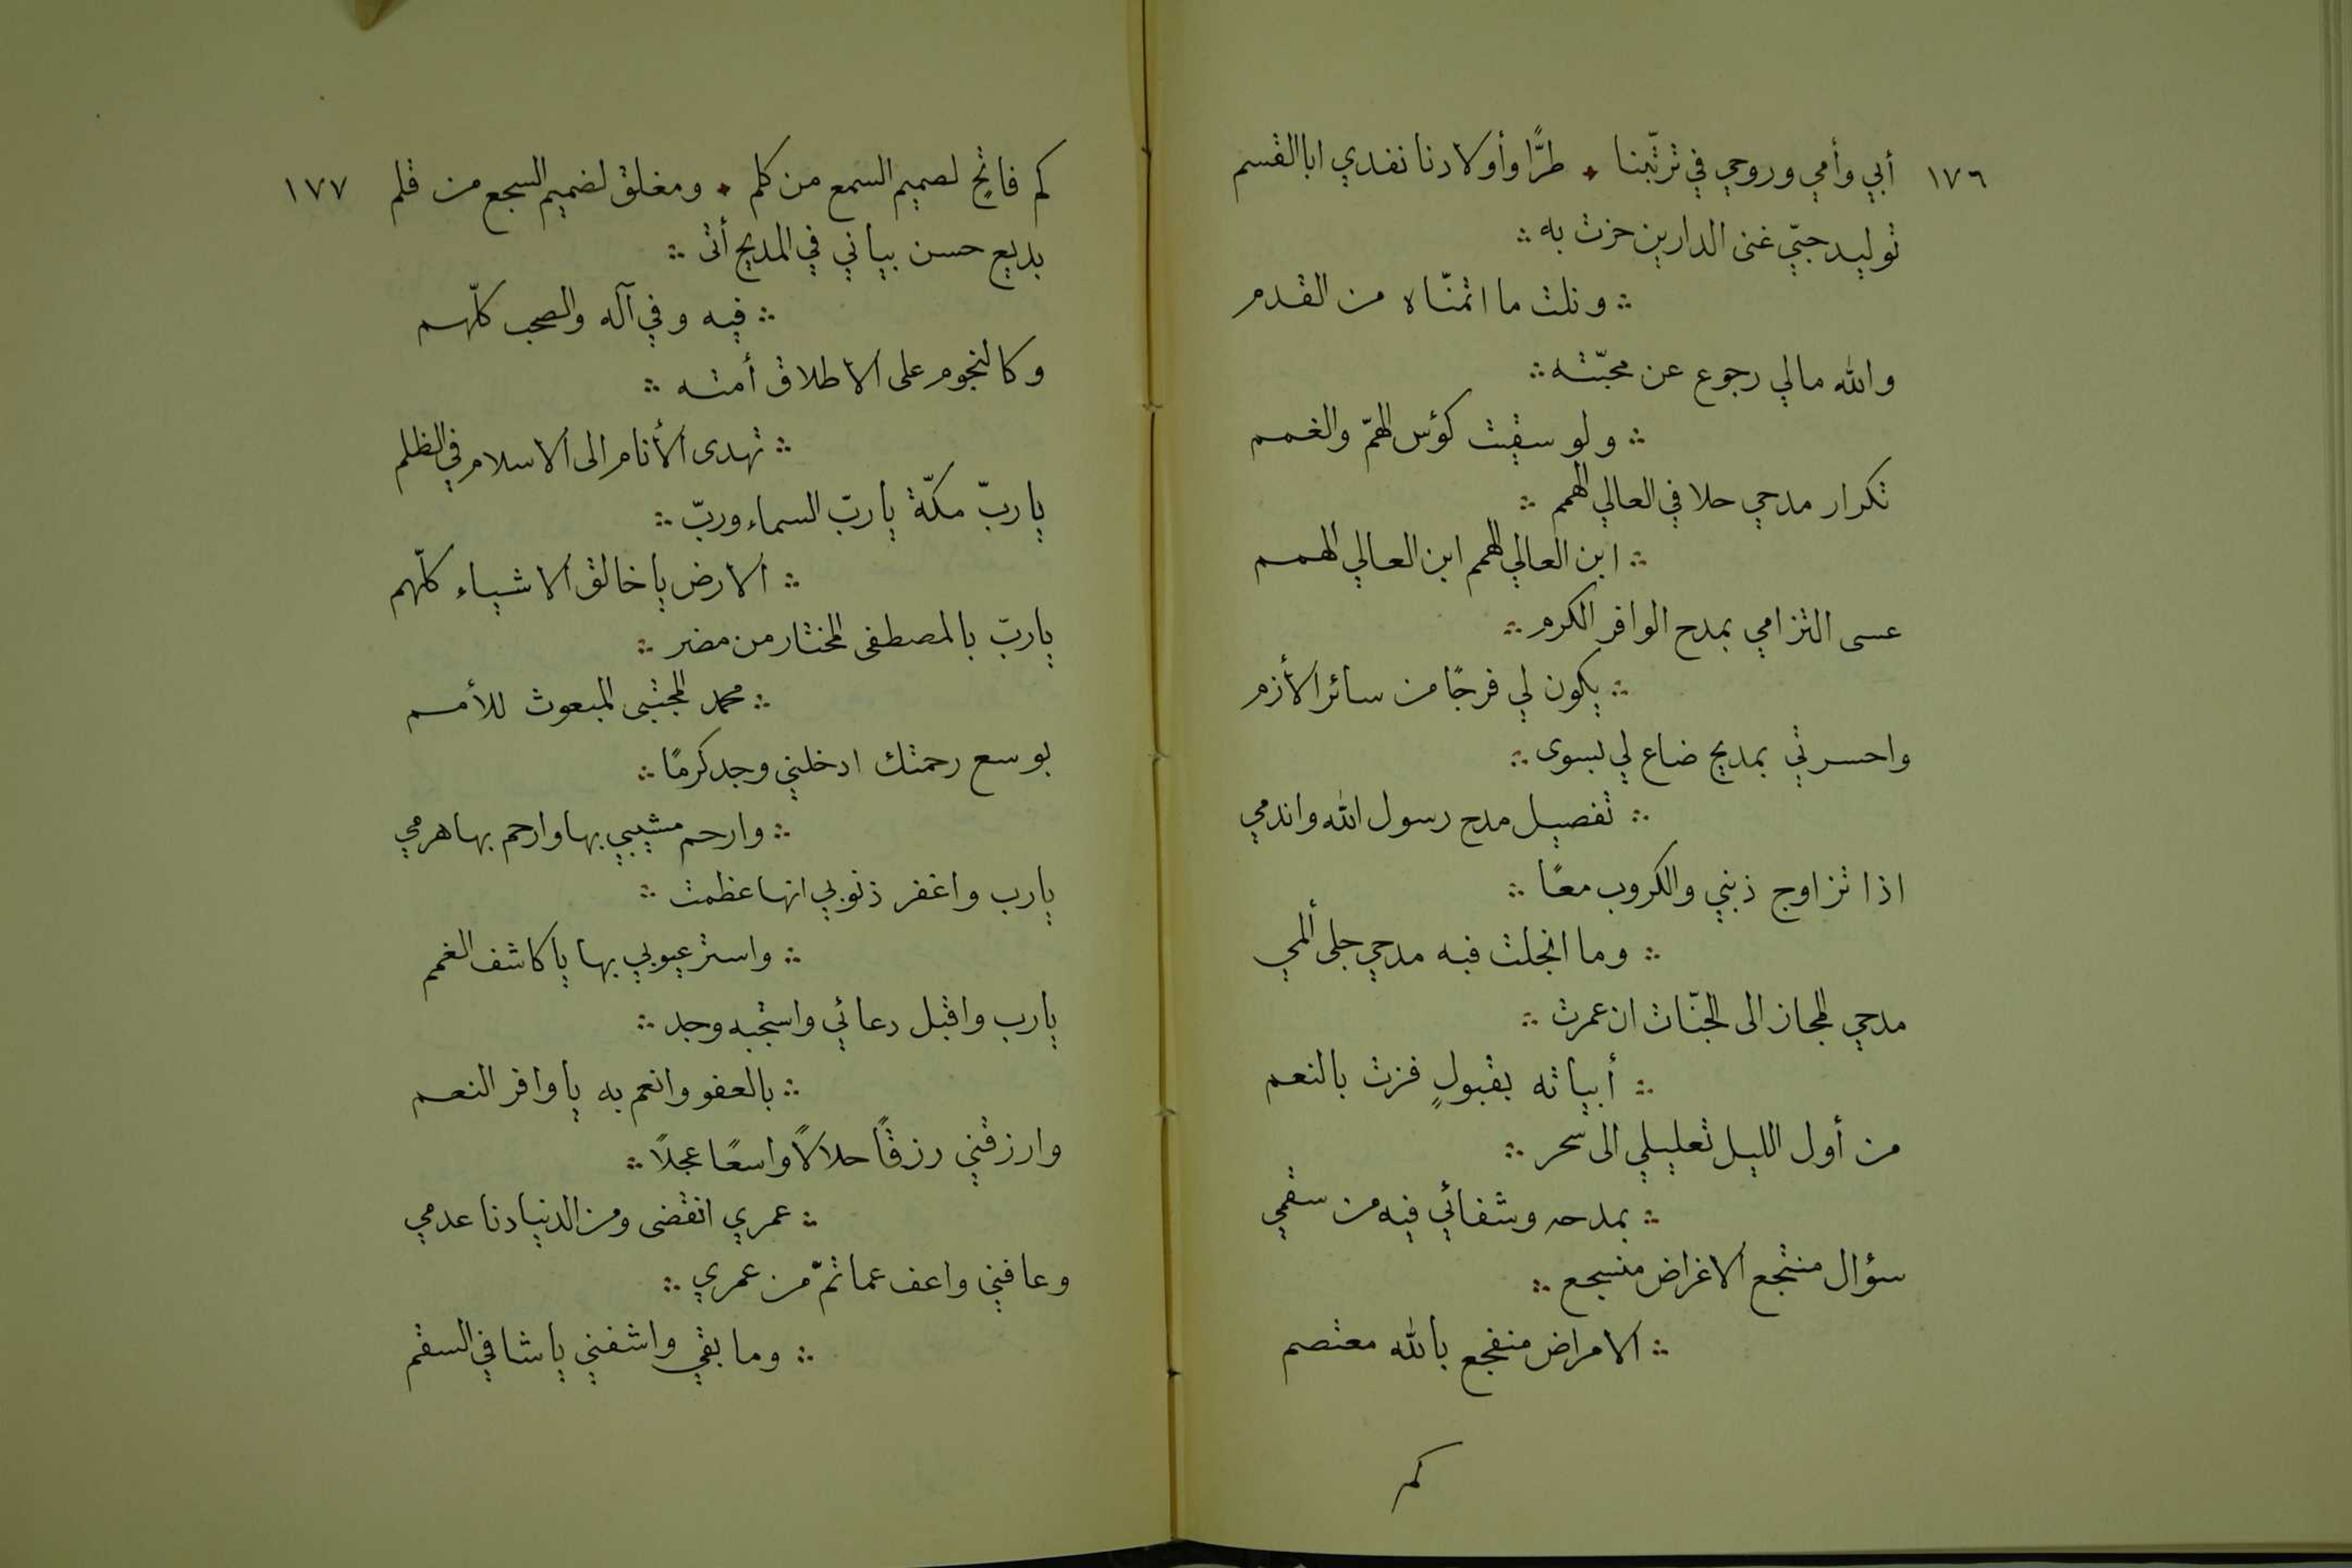 ١٧٦ أبي وأمي وروحي في ترتّبنا ٭ طرًّا وأولادنا نفدي ابا القسم
توليد حبّي غنى الدارين حزت به ∴
∴ ونلت ما اتمنّاه من القدم
والله مالي رجوع عن محبّته ∴
∴ ولو سقيت كؤس الهمّ والغمم
تكرار مدحي حلا في العالي الهمم ∴
∴ ابن العالي الهمم ابن العالي الهمم
عسى التزامي بمدح الوافر الكرم ∴
∴ يكون لي فرجًا من سائر الأزم
واحسرتي بمديح ضاع لي بسوى ∴
∴ تفصيل مدح رسول الله واندمي
اذا تزاوج ذنبي والكروب معًا ∴
∴ وما انجلت فيه مدحي جلى ألمي
مدحي المجاز الى الجنّات ان عمرت ∴
∴ أبياته بقبولٍ فزت بالنعم
من أول الليل تعليلي الى سحر ∴
∴ بمدحه وشفائي فيه من سقمي
سؤال منتجع الاغراض منسجع ∴
∴ الامراض منفجع بالله معتصم
كم
كم فاتحٍ لصميم السمع من كلم ٭ ومغلق لضميم السجع من قلم ١٧٧
بديع حسن بياني في المديح أتى ∴
∴ فيه وفي آله والصحب كلّهم
وكالنجوم على الاطلاق أمته ∴
∴ تهدى الأنام الى الاسلام في الظلم
يا ربّ مكّة يا ربّ السماء وربّ ∴
∴ الارض يا خالق الاشياء كلّهم
يا ربّ بالمصطفى المختار من مضر ∴
∴ محمد المجتبى المبعوث للأمم
بوسع رحمتك ادخلني وجد كرمًا ∴
∴ وارحم مشيبي بها وارحم بها هرمي
يا رب واغفر ذنوبي انها عظمت ∴
∴ واستر عيوبي بها يا كاشف الغمم
يا رب واقبل دعائي واستجبه وجد ∴
∴ بالعفو وانعم به يا وافر النعم
وارزقني رزقًا حلالًا واسعًا عجلًا ∴
∴ عمري انقضى ومن الدنيا دنا عدمي
وعافني واعف عما تمّ من عمري ∴
∴ وما بقي واشفني يا شافي السقم